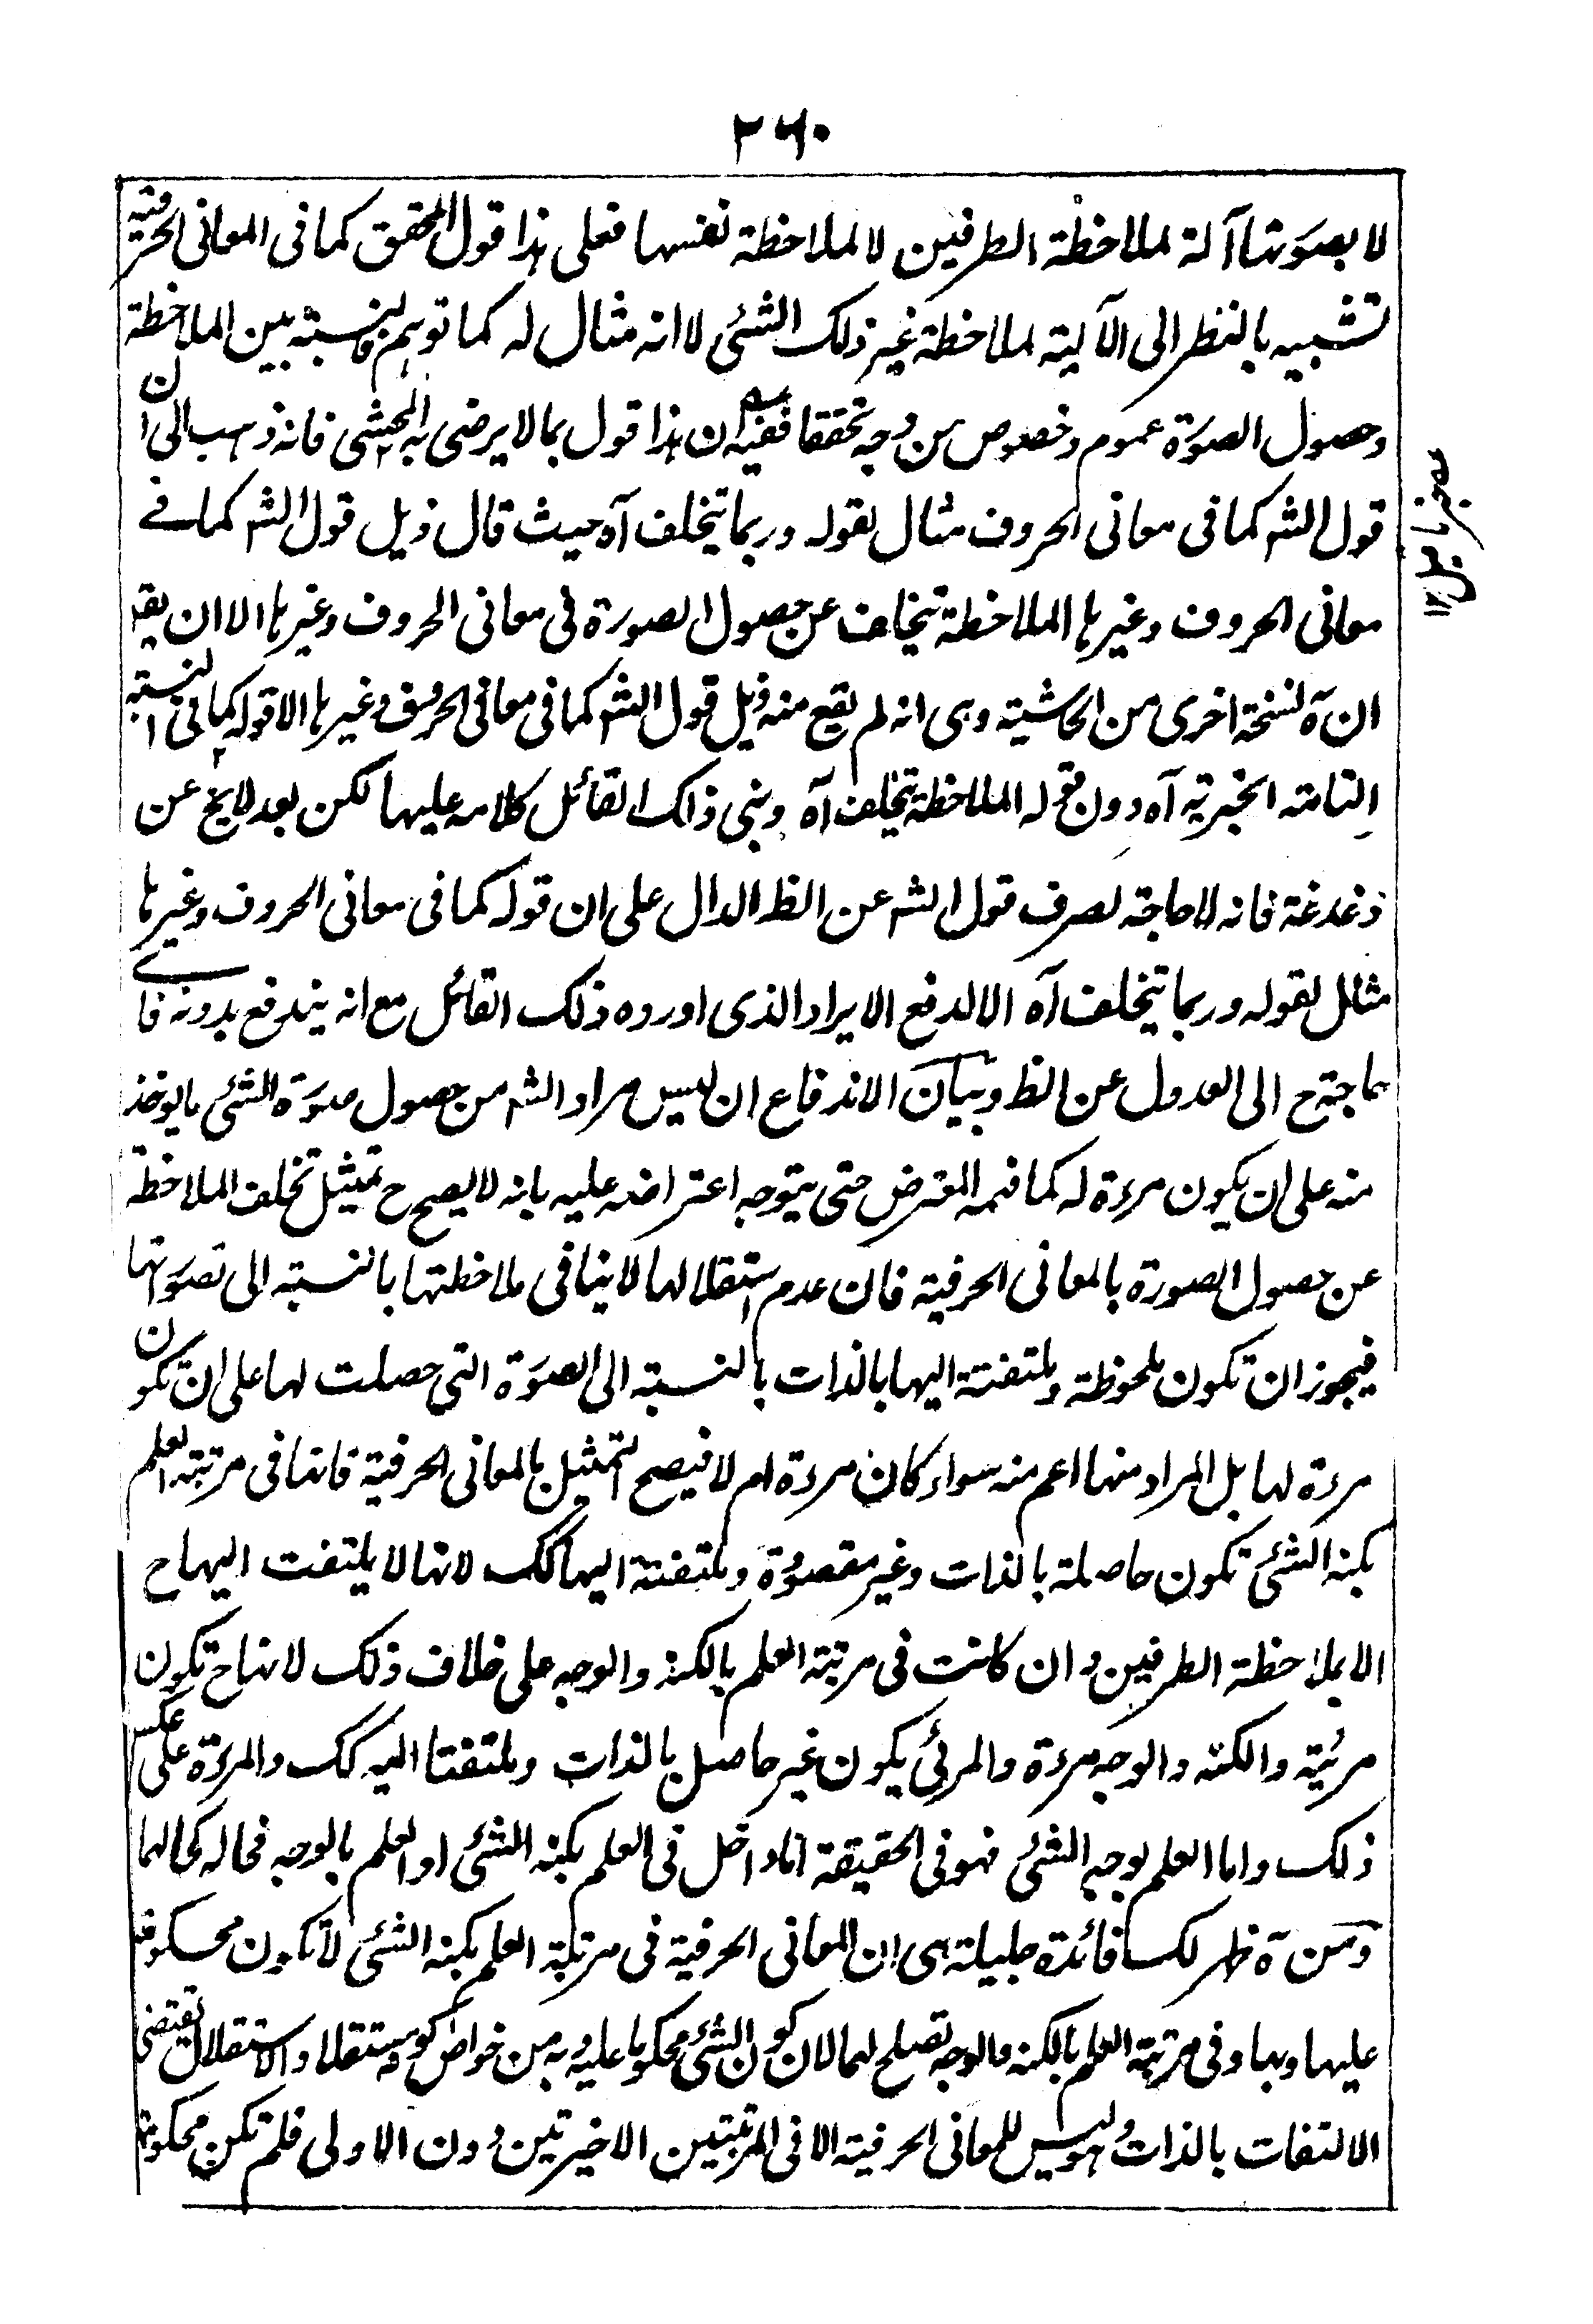 ٢٦٠
لا بصورتها آلة لملاحظة الطرفين لا لملاحظة نفسها فعلى هذا قول المحقق كما فى المعانى الحرفية
تشبيه بالنظر الى الآلية لملاحظة غير ذلك الشئى لا انه مثال له كما توهم فالنسبة بين الملاحظة
وحصول الصورة عموم وخصوص من وجه تحققا ففيه ان هذا قول بما لا يرضى به المحشى فانه ذهب الى ان
قول الشہ كما فى معانى الحروف مثال لقوله وربما يتخلف آه حيث قال ذيل قول الشہ كما فے
معانى الحروف وغيرها الملاحظة تتخلف عن حصول الصورة فى معانى الحروف وغيرها الا ان يقہ
ان ة نسخة اخرى من الحاشية وهى انه لم يقع منه ذيل قول الشہ كما فى معانى الحروف وغيرها الا قوله كما فى النسبة
التامة الخبرية آه دون قوله الملاحظة تتخلف آه وبنى ذلك القائل كلامه عليها لكن بعد لا يخ عن
دغدغة فانه لا حاجة لصرف قول الشہ عن الظ الدال على ان قوله كما فى معانى الحروف وغيرها
مثال لقوله وربما يتخلف آه الا لدفع الايراد الذى اورده ذلك القائل مع انه يندفع بدونه فاے
حاجة ح الى العدول عن الظ وبيان الاندفاع ان ليس مراد الشہ من حصول صورة الشئى ما يوخذ
منه على ان يكون مرءة له كما فهمه المعترض حتى يتوجه اعتراضه عليه بانه لا يصح ح تمثيل تخلف الملاحظة
عن حصول الصورة بالمعانى الحرفية فان عدم استقلالها لا ينافى ملاحظتها بالنسبة الى تصوراتها
فيجوز ان تكون ملحوظة وملتفتة اليها بالذات بالنسبة الى الصورة التى حصلت لها على ان تكون
مرءة لها بل المراد منها اعم منه سواء كان مرءة ام لا فيصح التمثيل بالمعانى الحرفية فانها فى مرتبة العلم
بكنه الشئى تكون حاصلة بالذات وغير مقصودة وملتفتة اليها كك لانها لا يلتفت اليها ح
الا بملاحظة الطرفين وان كانت فى مرتبة العلم بالكنه والوجه على خلاف ذلك لانها ح تكون
مرئية والكنه والوجه مرءة والمرئى يكون غير حاصل بالذات وملتفتا اليه كك والمرءة على عكس
ذلك واما العلم بوجه الشئى فهو فى الحقيقة اما داخل فى العلم بكنه الشئى او العلم بالوجه فحاله كحالهما
ومن ة ظهر لك فائدة جليلة هى ان المعانى الحرفية فى مرتبة العلم بكنه الشئى لا تكون محكوما
عليها وبها وفى مرتبة العلم بالكنه والوجه تصلح لهما لان كون الشئى محكوما عليه وبه من خواص كونه مستقلا والاستقلال يقتضى
الالتفات بالذات وهو ليس للمعانى الحرفية الا فى المرتبتين الاخيرتين دون الاولى فلم تكن محكومة